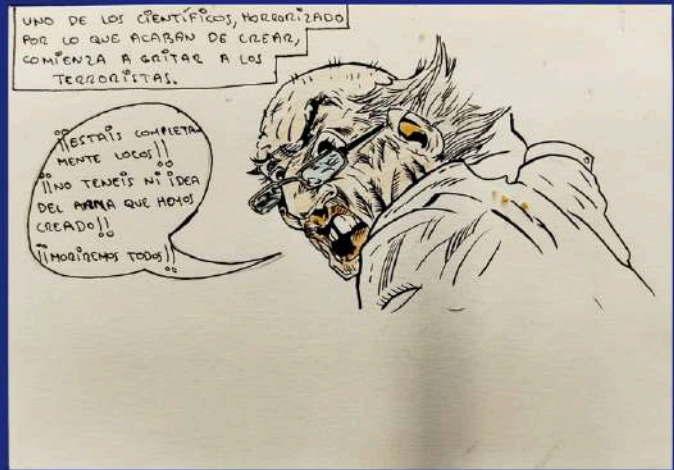 UNO DE LOS CIENTÍFICOS, HORRORIZADO
POR LO QUE ACABAN DE CREAR,
COMIENZA A GRITAR A LOS
TERRORISTAS.
¡¡ESTAÍS COMPLETA-
MENTE LOCOS!!
¡¡NO TENEÍS NI IDEA
DEL ARMA QUE HEMOS
CREADO!!
¡¡MORIREMOS TODOS!!